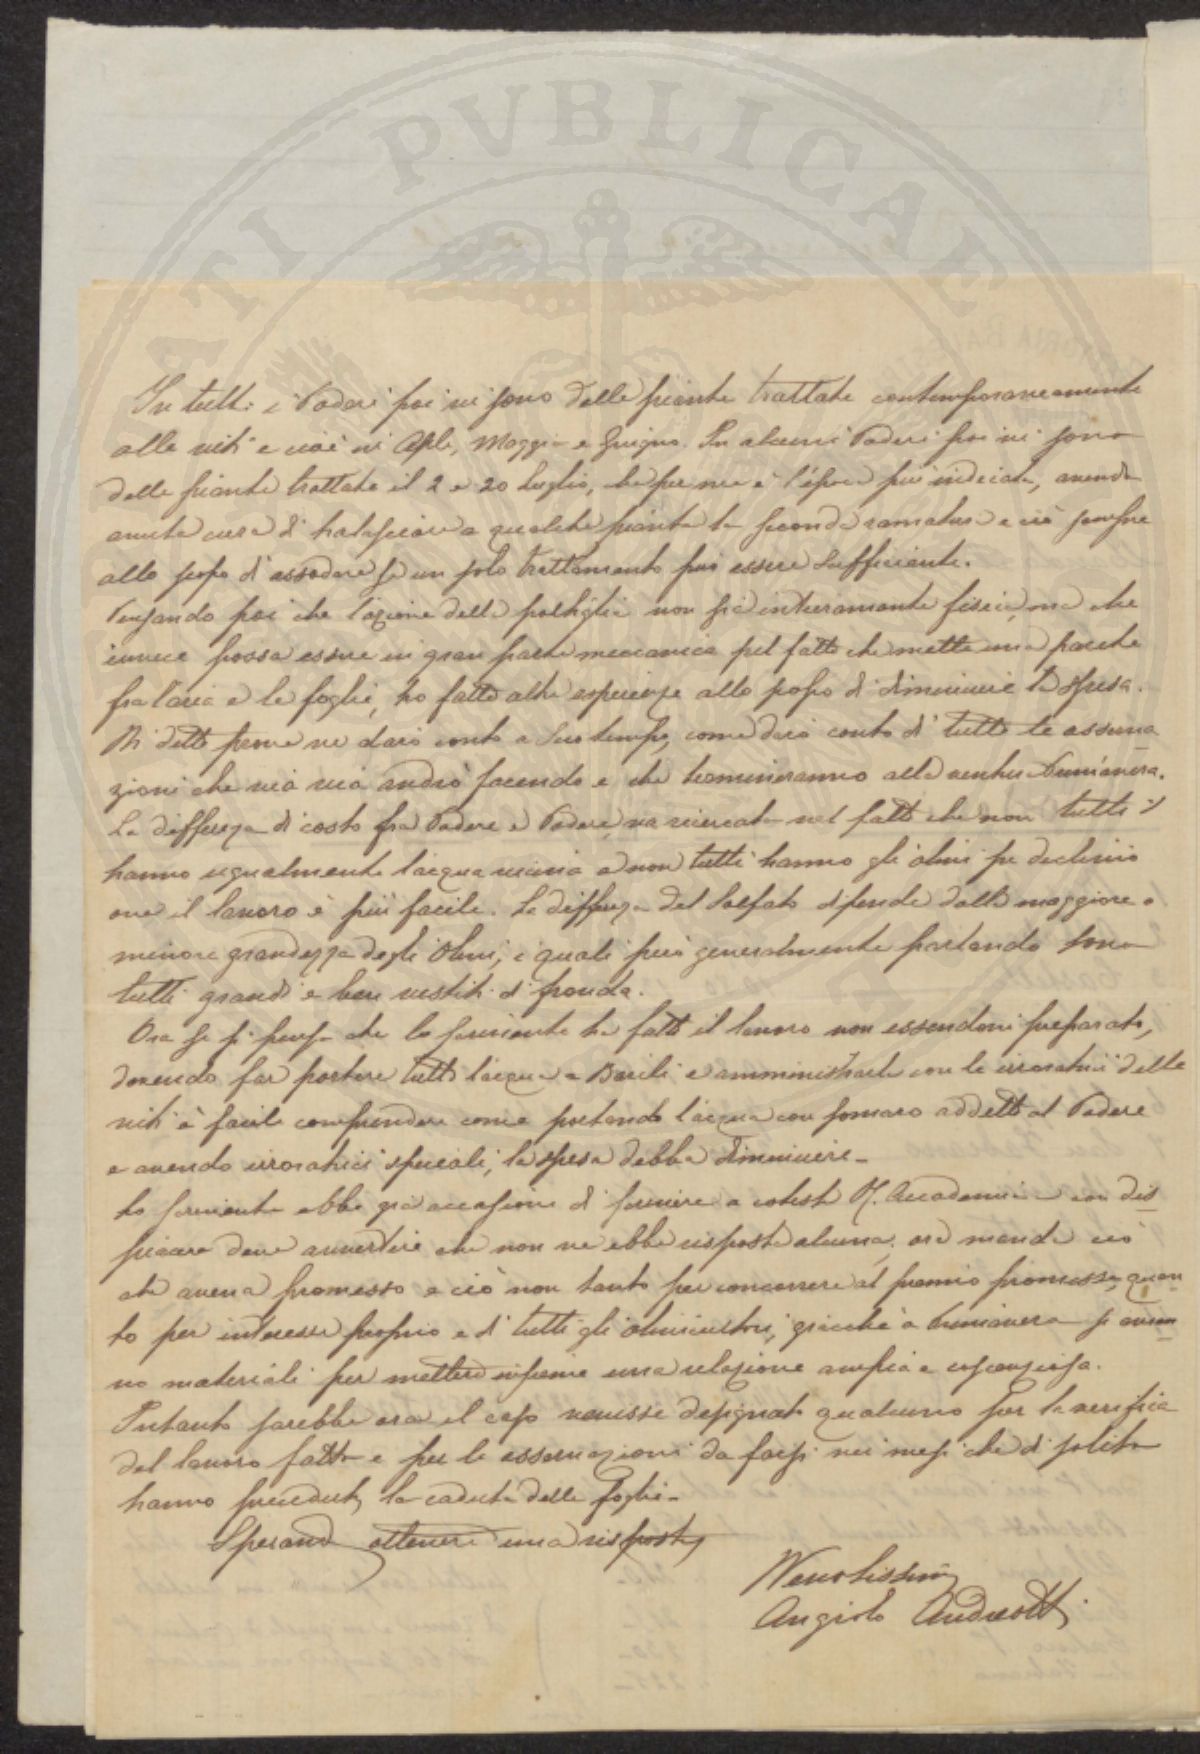 PUBLICAE
In tutti i Poderi poi vi sono delle piante trattate contemporaneamente
alle viti e cioè in Aple, Maggio e Giugno. In alcuni Poderi poi vi sono
delle piante trattate il 2 e 20 Luglio, che per me è l'epoca più indicata, avendo
avuta cura di tralasciare a qualche pianta la seconda ramatura e ciò sempre
allo scopo di assodare se un solo trattamento può essere sufficiente.
Pensando poi che l'azione della poltiglia non sia interamente fisica, ma che
invece possa essere in gran parte meccanica pel fatto che mette una parete
fra l'aria e le foglie, ho fatto altre esperienze allo scopo di diminuire la spesa.
Di dette prove ne darò conto a suo tempo, come darò conto di tutte le osserva
zioni che via via andrò facendo e che termineranno alla ventura Primavera.
La differenza di costo fra Podere e Podere, va ricercata nel fatto che non tutti
hanno ugualmente l'acqua vicina e non tutti hanno gli olivi in declivio
ove il lavoro è più facile. La differenza del Solfato dipende dalla maggiore o
minore grandezza degli Olivi, i quali però generalmente parlando sono
tutti grandi e ben vestiti di fronda.
Ora se si pensa che lo scrivente ha fatto il lavoro non essendovi preparato,
dovendo far portare tutta l'acqua a Barili e amministrarla con le irroratrici delle
viti è facile comprendere come portando l'acqua con somaro addetto al Podere
e avendo irroratrici speciali, la spesa debba diminuire_
Lo scrivente ebbe già occasione di scrivere a cotesta R. Accademia e con dis
piacere deve avvertire che non ne ebbe risposta alcuna; ora manda ciò
che aveva promesso e ciò non tanto per concorrere al premio promesso, quan
to per interesse proprio e di tutti gli olivicultori, giacchè a Primavera si avran
no materiali per mettere insieme una relazione ampia e coscenziosa.
Intanto sarebbe ora il caso venisse designato qualcuno per la verifica
del lavoro fatto e per le osservazioni da farsi nei mesi che di solito
hanno preceduto la caduta delle foglie_
Sperando ottenere una risposta
Devotissimo
Angiolo Andreotti